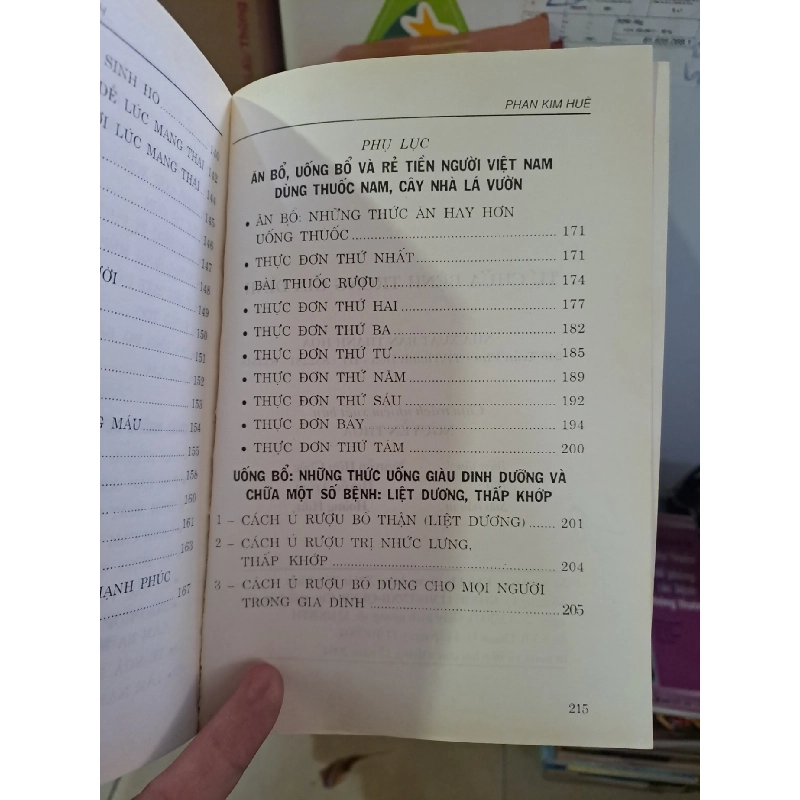 SINH HỌ
140
DỄ LÚC MANG THAI 142
LÚC MANG THAI 144
145
146
147
148
149
150
151
152
153
G MÁU 154
155
158
160
161
163
HẠNH PHÚC
167
PHAN KIM HUÊ
PHỤ LỤC
ĂN BỔ, UỐNG BỔ VÀ RẺ TIỀN NGƯỜI VIỆT NAM
DÙNG THUỐC NAM, CÂY NHÀ LÁ VƯỜN
• ĂN BỔ: NHỮNG THỨC ĂN HAY HƠN
UỐNG THUỐC 171
• THỰC ĐƠN THỨ NHẤT 171
• BÀI THUỐC RƯỢU 174
• THỰC ĐƠN THỨ HAI 177
• THỰC ĐƠN THỨ BA 182
• THỰC ĐƠN THỨ TƯ 185
• THỰC ĐƠN THỨ NĂM 189
• THỰC ĐƠN THỨ SÁU 192
• THỰC ĐƠN BẢY 194
• THỰC ĐƠN THỨ TÁM 200
UỐNG BỔ: NHỮNG THỨC UỐNG GIÀU DINH DƯỠNG VÀ
CHỮA MỘT SỐ BỆNH: LIỆT DƯƠNG, THẤP KHỚP
1 – CÁCH Ủ RƯỢU BỔ THẬN (LIỆT DƯƠNG) 201
2 – CÁCH Ủ RƯỢU TRỊ NHỨC LƯNG,
THẤP KHỚP 204
3 – CÁCH Ủ RƯỢU BỔ DÙNG CHO MỌI NGƯỜI
TRONG GIA ĐÌNH 205
215